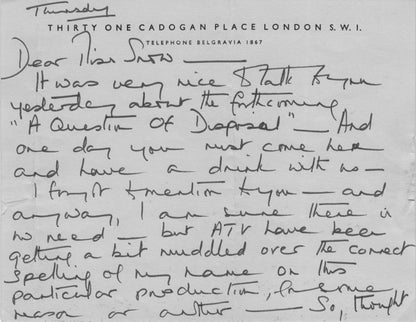 Thursday
THIRTY ONE CADOGAN PLACE LONDON S.W.1.
TELEPHONE BELGRAVIA 1867
Dear Miss Snow —
It was very nice to talk to you
yesterday about the forthcoming
"A Question Of Disposal" — And
one day you must come here
and have a drink with us —
I forgot to mention to you — and
anyway, I am sure there is
no need — but ATV have been
getting a bit muddled over the correct
spelling of my name on this
particular production, for some
reason or another — So, I thought